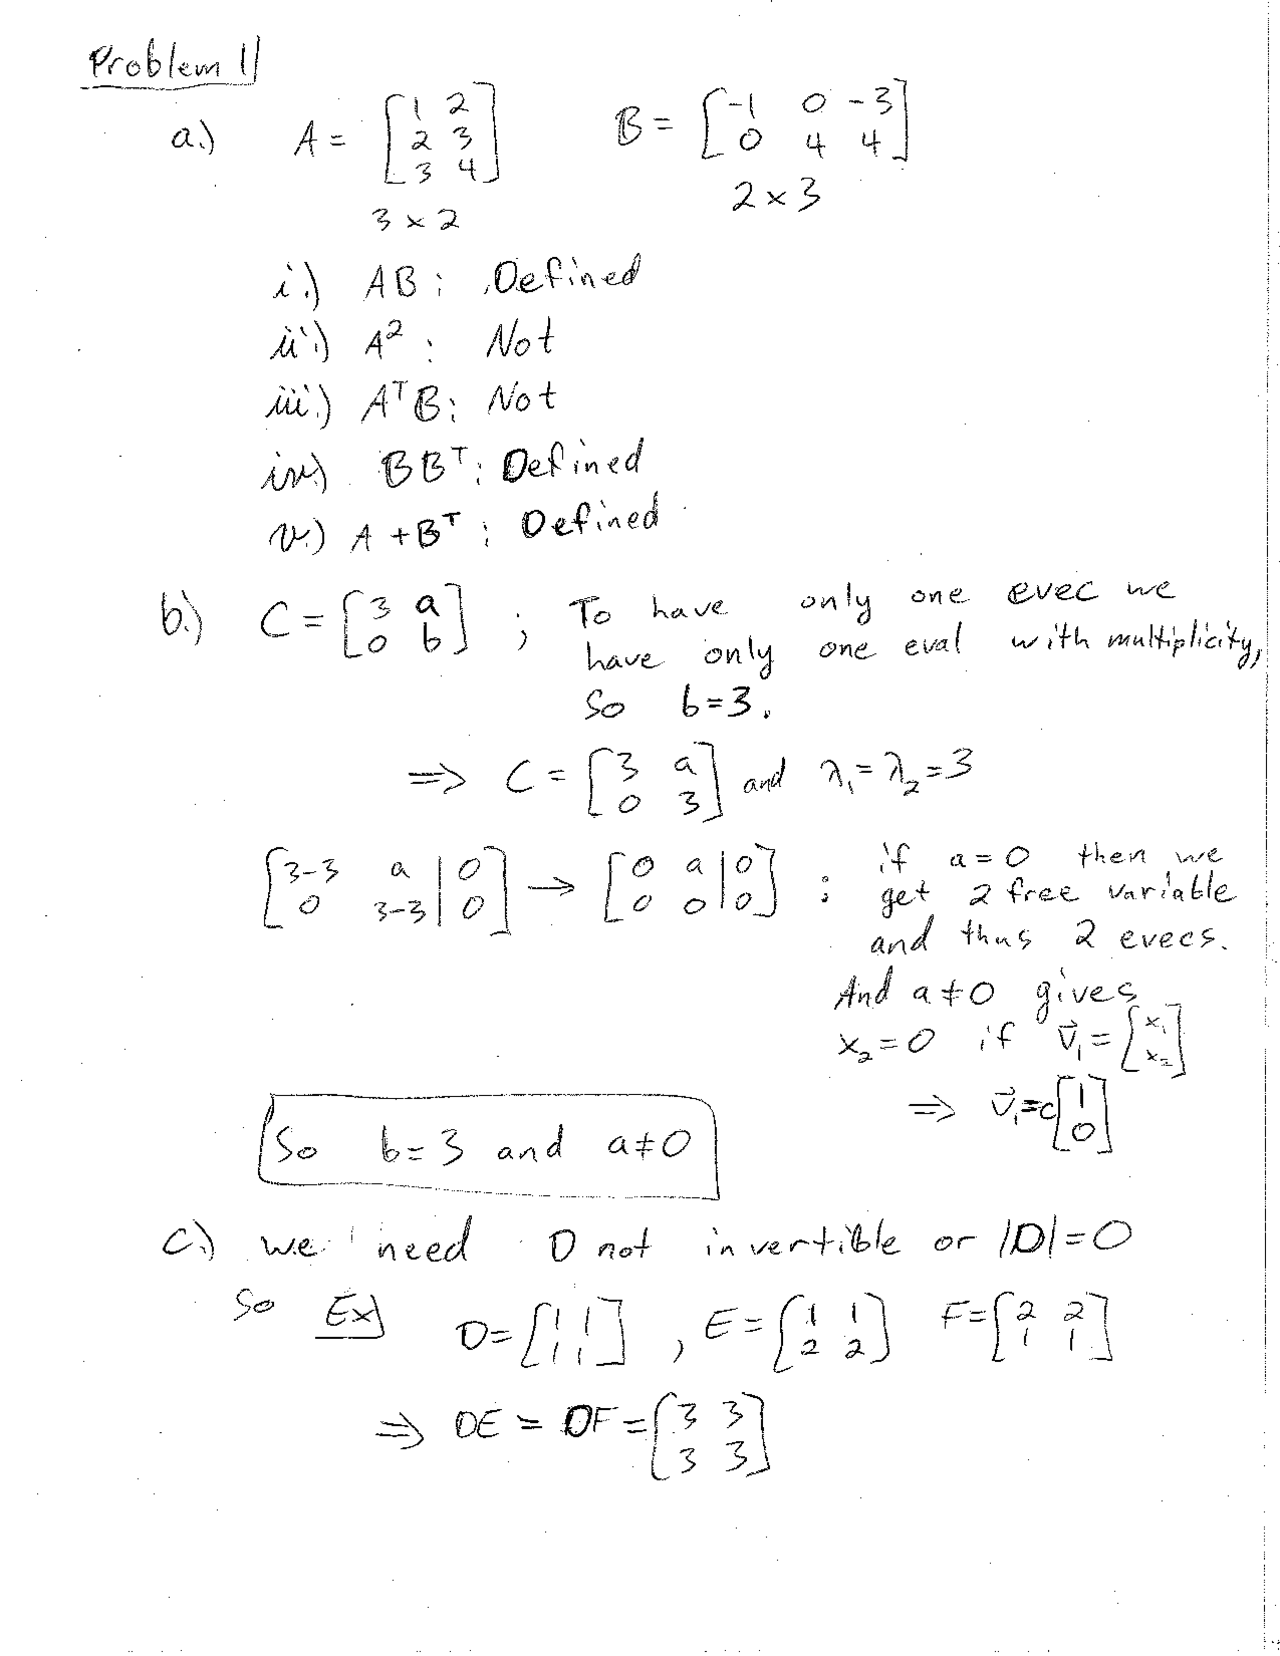 Problem 1
a.) A = [1 2; 2 3; 3 4] B = [-1 0 -3; 0 4 4]
3 x 2 2 x 3
i.) AB: Defined
ii.) A² : Not
iii.) AᵀB: Not
iv.) BBᵀ: Defined
v.) A + Bᵀ ; Defined
b.) C = [3 a; 0 b] ; To have only one evec we
have only one eval with multiplicity,
So b=3.
⇒ C = [3 a; 0 3] and λ₁=λ₂=3
[3-3 a | 0; 0 3-3 | 0] → [0 a | 0; 0 0 | 0] ; if a=0 then we
get 2 free variable
and thus 2 evecs.
And a≠0 gives
x₂=0 if v⃗₁=[x₁; x₂]
⇒ v⃗₁=c[1; 0]
So b=3 and a≠0
c.) we need D not invertible or |D|=0
so Ex) D=[1 1; 1 1], E=[1 1; 2 2] F=[2 2; 1 1]
⇒ DE = DF = [3 3; 3 3]